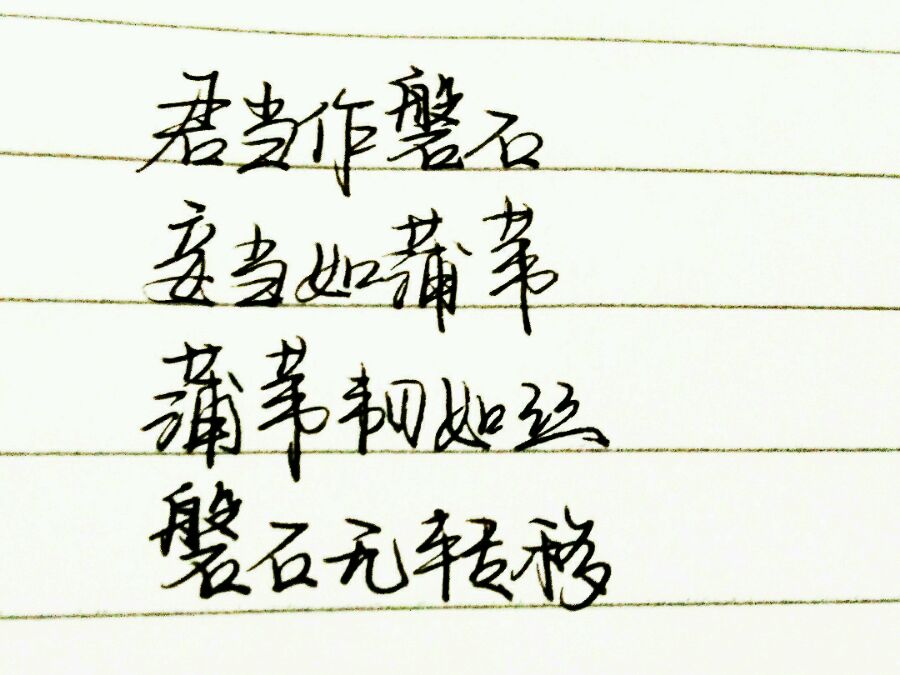 君当作磐石
妾当如蒲苇
蒲苇韧如丝
磐石无转移